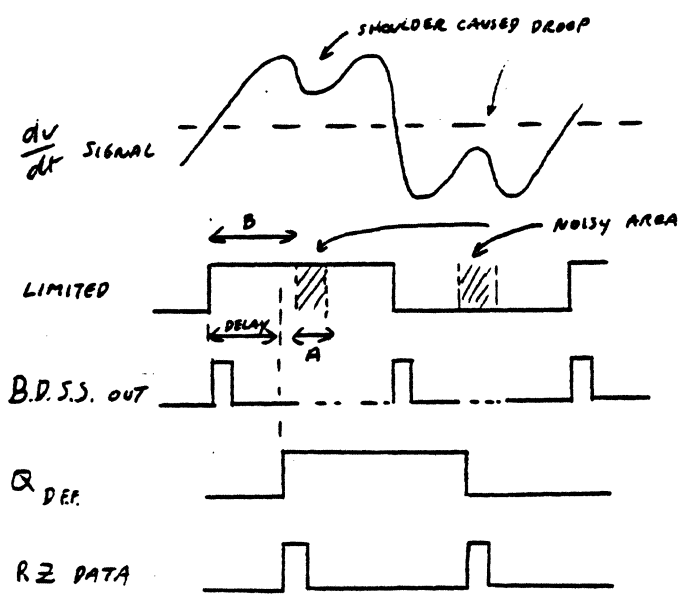 SHOULDER CAUSED DROOP
dv
dt SIGNAL
B
NOISY AREA
LIMITED
DELAY
A
B.D.S.S. OUT
Q D.F.F.
RZ DATA